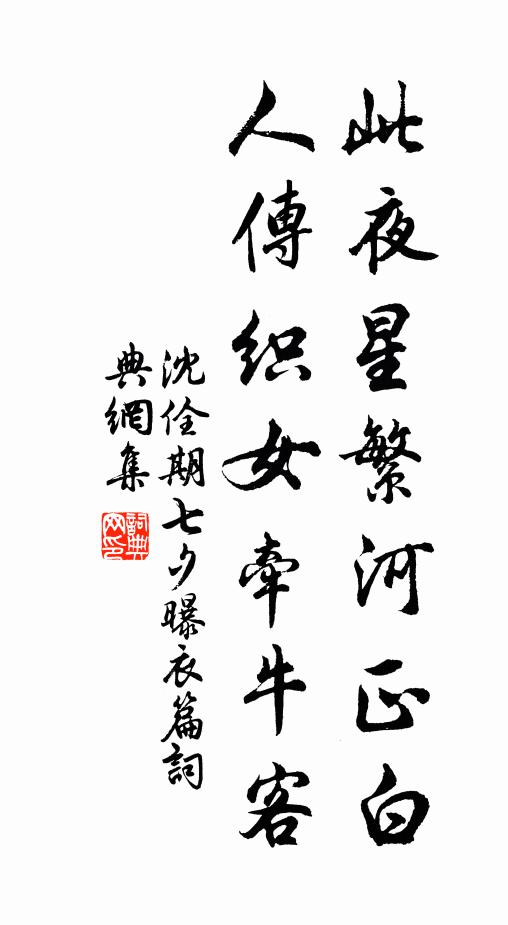 此夜星繁河正白
人傳织女牽牛客
沈佺期七夕曝衣篇詞
典網集
詞典
网印